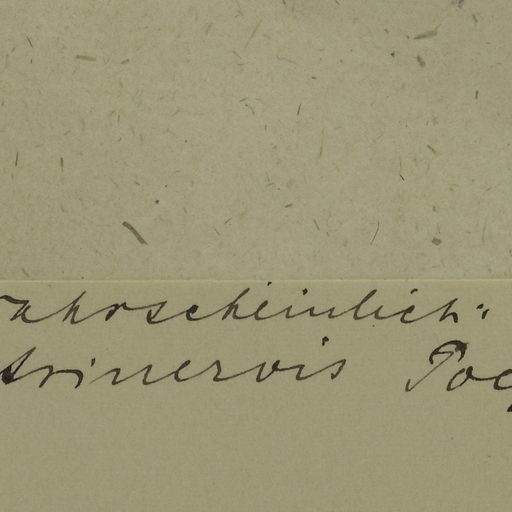 wahrscheinlich:
trinervis Poe